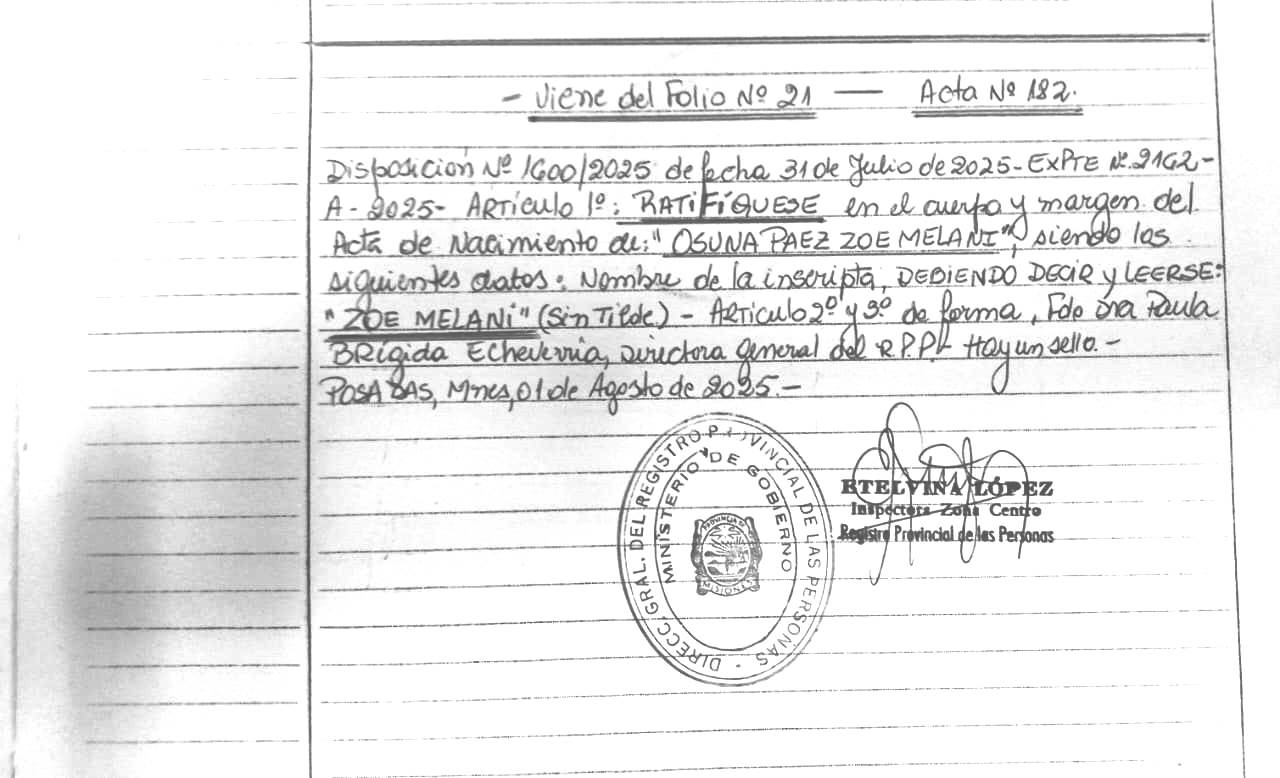 - Viene del Folio Nº 21 — Acta Nº 182.
Disposición Nº 1600/2025 de fecha 31 de Julio de 2025 - EXPTE Nº 2162 -
A - 2025 - ARTÍCULO 1º: RATIFÍQUESE en el cuerpo y margen del
Acta de Nacimiento de: "OSUNA PAEZ ZOE MELANI", siendo los
siguientes datos: Nombre de la inscripta, DEBIENDO DECIR y LEERSE:
"ZOE MELANI" (Sin Tilde) - Articulo 2º y 3º de forma, Fdo Dra Paula
Brígida Echeverria, Directora General del R.P.P. Hay un sello. -
POSADAS, Mnes, 01 de Agosto de 2025. -
DIRECC. GRAL. DEL REGISTRO PROVINCIAL DE LAS PERSONAS -
MINISTERIO DE GOBIERNO
PROVINCIA DE
MISIONES
ETELVINA LÓPEZ
Inspectora Zona Centro
Registro Provincial de las Personas